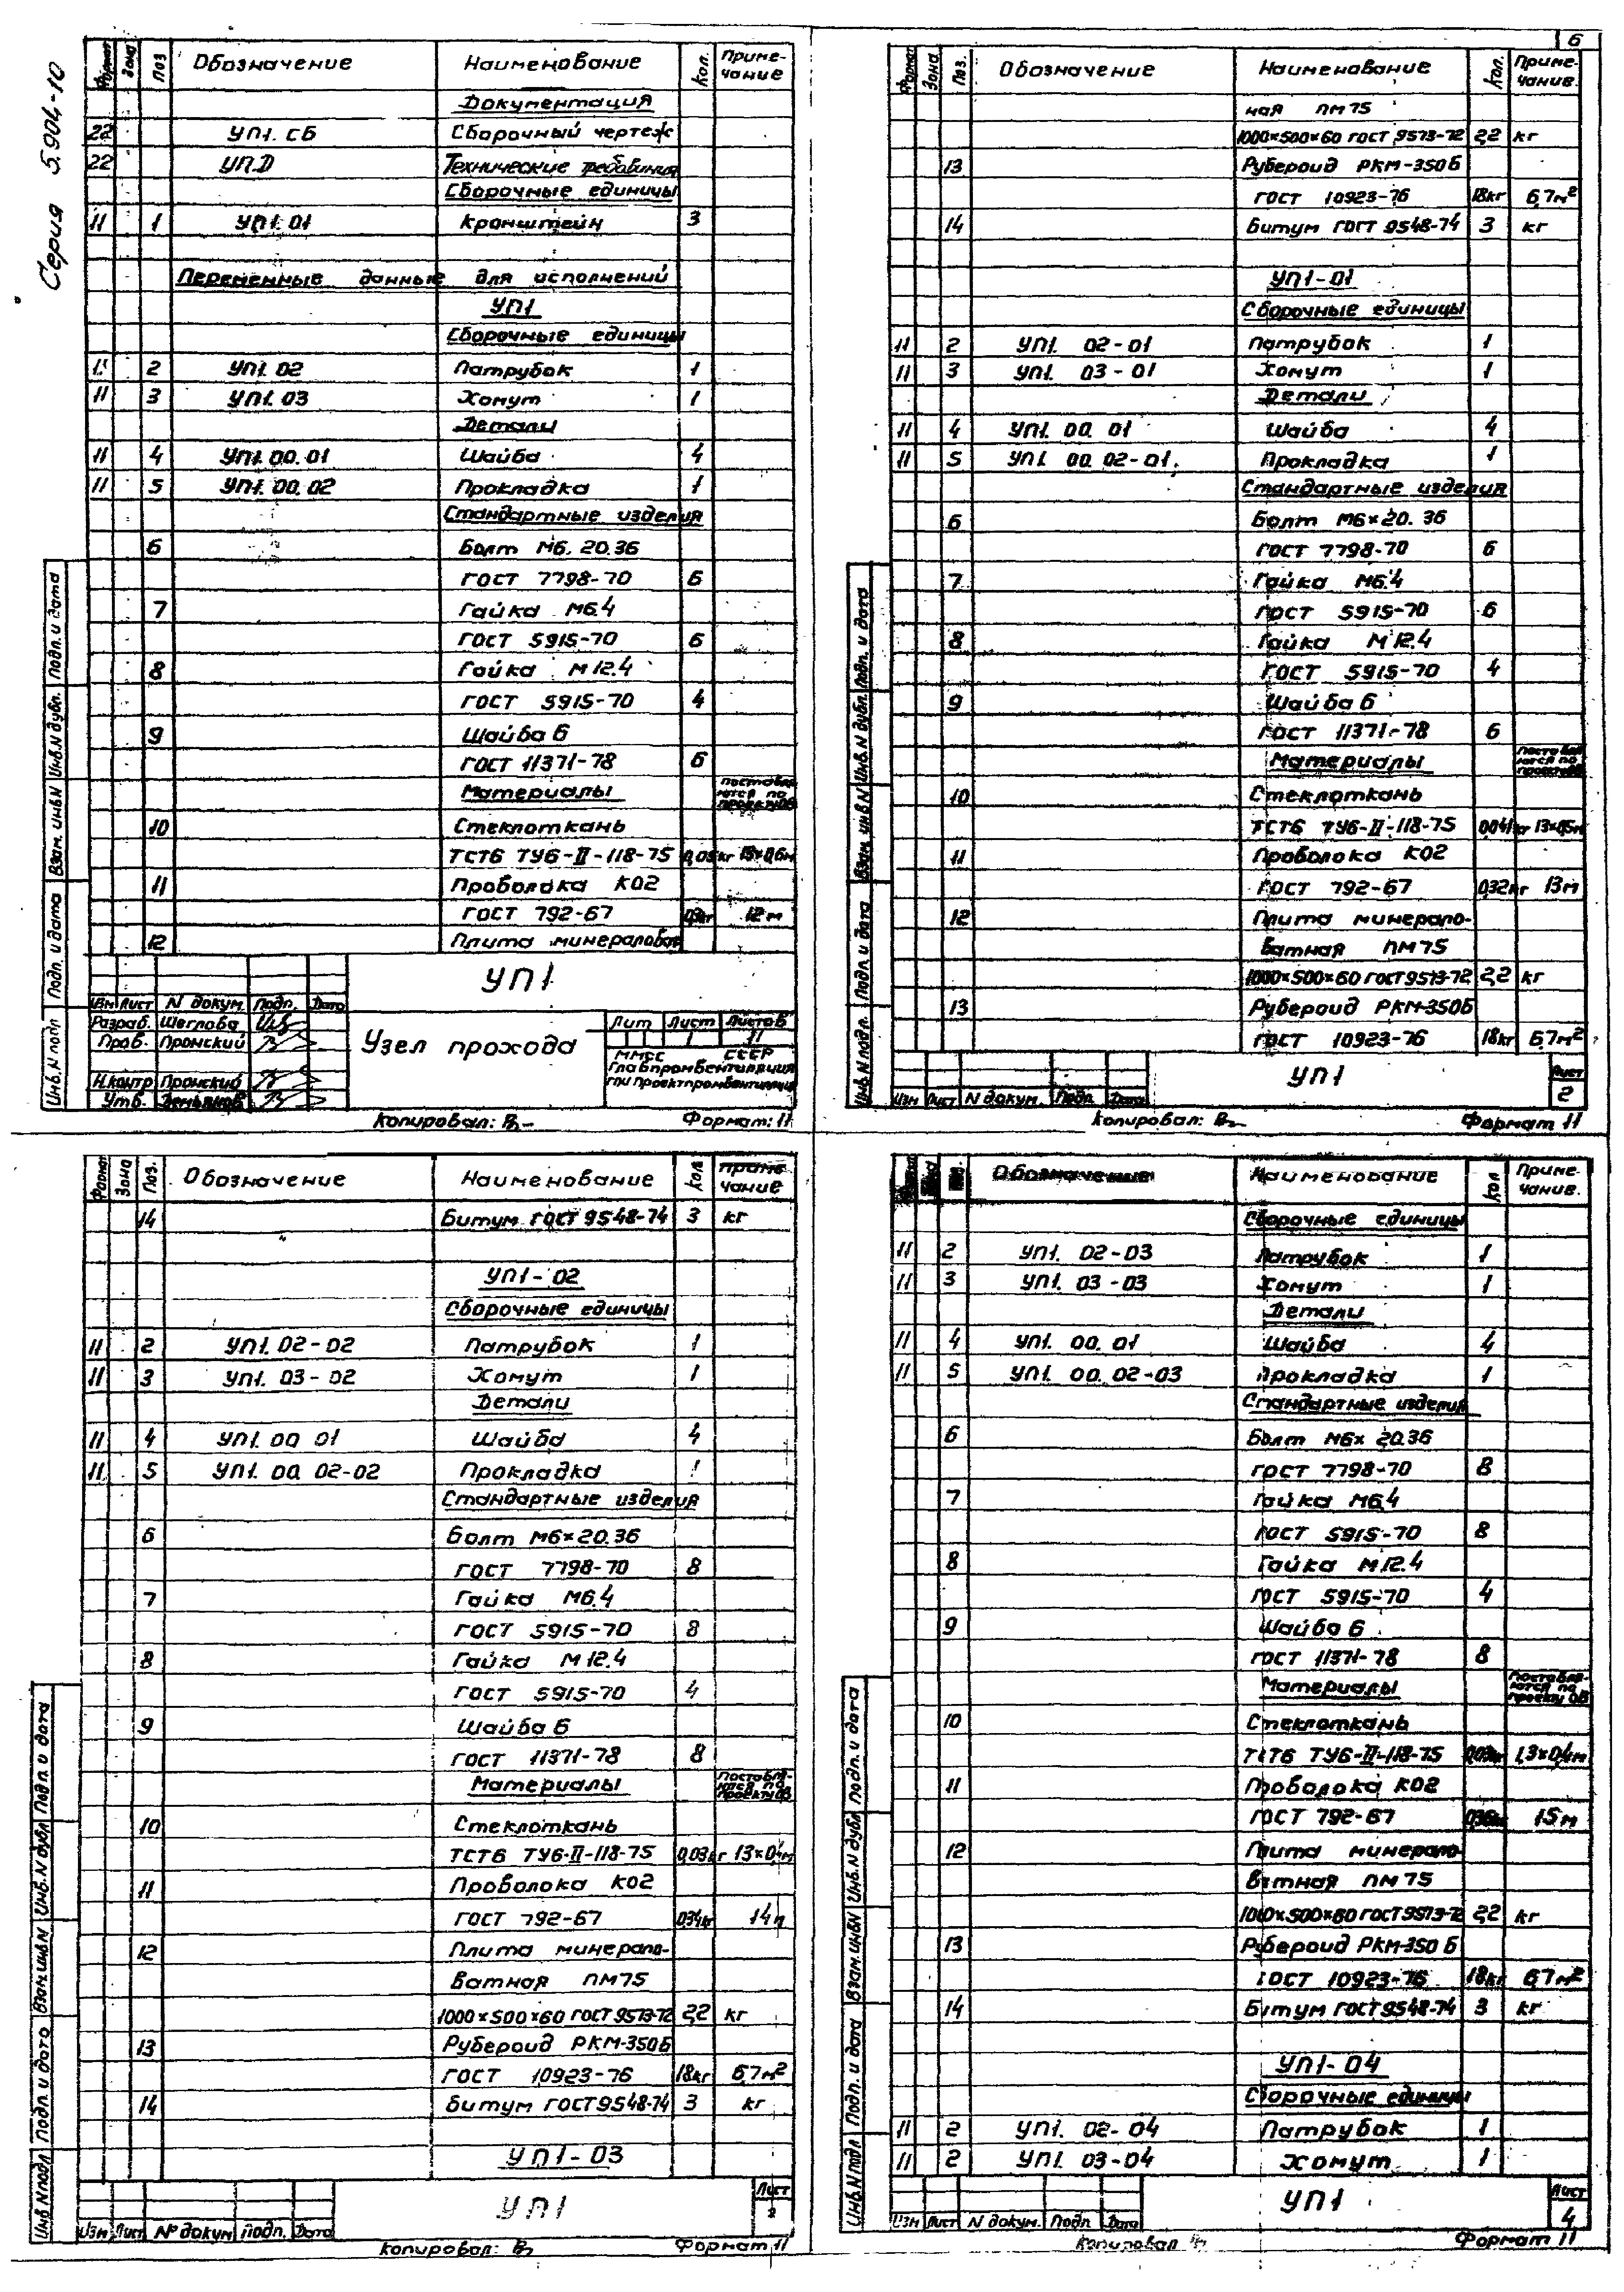 Серия 5.904-10
6
Формат Зона Поз Обозначение Наименование Кол. Приме-
чание
Документация
22 УП1.СБ Сборочный чертеж
22 УП.Д Технические требования
Сборочные единицы
11 1 УП1.01 Кронштейн 3
Переменные данные для исполнений
УП1
Сборочные единицы
11 2 УП1.02 Патрубок 1
11 3 УП1.03 Хомут 1
Детали
11 4 УП1.00.01 Шайба 4
11 5 УП1.00.02 Прокладка 1
Стандартные изделия
6 Болт М6.20.36
ГОСТ 7798-70 6
7 Гайка М6.4
ГОСТ 5915-70 6
8 Гайка М12.4
ГОСТ 5915-70 4
9 Шайба 6
ГОСТ 11371-78 6
Материалы Поставля-
ются по
проекту ОВ
10 Стеклоткань
ТСТ6 ТУ6-II-118-75 0,05кг 13×0,6м
11 Проволока КО2
ГОСТ 792-67 12м
12 Плита минераловат
УП1
Изм Лист N докум. Подп. Дата
Разраб. Щеглова
Пров. Пронский
Н.контр Пронский
Утв.
Узел прохода
Лит Лист Листов
1 11
ММСС СССР
Главпромвентиляция
ГПИ Проектпромвентиляция
Инв.N подл Подп. и дата Взам. инв.N Инв.N дубл. Подп. и дата
Копировал: Формат: 11
Формат Зона Поз. Обозначение Наименование Кол. Приме-
чание.
ная ПМ75
1000×500×60 ГОСТ 9573-72 2,2 кг
13 Рубероид РКМ-350Б
ГОСТ 10923-76 18кг 6,7м²
14 Битум ГОСТ 9548-74 3 кг
УП1-01
Сборочные единицы
11 2 УП1. 02-01 Патрубок 1
11 3 УП1. 03-01 Хомут 1
Детали
11 4 УП1. 00. 01 Шайба 4
11 5 УП1. 00. 02-01. Прокладка 1
Стандартные изделия
6 Болт М6×20.36
ГОСТ 7798-70 6
7 Гайка М6.4
ГОСТ 5915-70 6
8 Гайка М12.4
ГОСТ 5915-70 4
9 Шайба 6
ГОСТ 11371-78 6
Материалы Поставля-
ются по
проекту ОВ
10 Стеклоткань
ТСТ6 ТУ6-II-118-75 0,041кг 13×0,5м
11 Проволока КО2
ГОСТ 792-67 0,32кг 13м
12 Плита минерало-
ватная ПМ75
1000×500×60 ГОСТ 9573-72 2,2 кг
13 Рубероид РКМ-350Б
ГОСТ 10923-76 18кг 6,7м²
УП1
Лист
2
Изм Лист N докум. Подп. Дата
Инв.N подл. Подп. и дата Взам. инв.N Инв.N дубл. Подп. и дата
Копировал: Формат 11
Формат Зона Поз. Обозначение Наименование Кол Приме-
чание
14 Битум ГОСТ 9548-74 3 кг
УП1-02
Сборочные единицы
11 2 УП1.02-02 Патрубок 1
11 3 УП1. 03-02 Хомут 1
Детали
11 4 УП1.00 01 Шайба 4
11 5 УП1. 00. 02-02 Прокладка 1
Стандартные изделия
6 Болт М6×20.36
ГОСТ 7798-70 8
7 Гайка М6.4
ГОСТ 5915-70 8
8 Гайка М12.4
ГОСТ 5915-70 4
9 Шайба 6
ГОСТ 11371-78 8
Материалы Поставля-
ются по
проекту ОВ
10 Стеклоткань
ТСТ6 ТУ6-II-118-75 0,03кг 13×0,4м
11 Проволока КО2
ГОСТ 792-67 0,34кг 14
12 Плита минерало-
ватная ПМ75
1000×500×60 ГОСТ 9573-72 2,2 кг
13 Рубероид РКМ-350Б
ГОСТ 10923-76 18кг 6,7м²
14 Битум ГОСТ 9548-74 3 кг
УП1-03
УП1
Лист
Изм Лист № докум Подп. Дата
Инв.N подл Подп. и дата Взам.инв.N Инв.N дубл Подп. и дата
Копировал: Формат 11
Обозначение Наименование Кол Приме-
чание.
Сборочные единицы
11 2 УП1. 02-03 Патрубок 1
11 3 УП1. 03-03 Хомут 1
Детали
11 4 УП1. 00. 01 Шайба 4
11 5 УП1. 00. 02-03 Прокладка 1
Стандартные изделия
6 Болт М6× 20.36
ГОСТ 7798-70 8
7 Гайка М6.4
ГОСТ 5915-70 8
8 Гайка М12.4
ГОСТ 5915-70 4
9 Шайба 6
ГОСТ 11371-78 8
Материалы Поставля-
ются по
проекту ОВ
10 Стеклоткань
ТСТ6 ТУ6-II-118-75 1,3×0,4м
11 Проволока КО2
ГОСТ 792-67 15м
12 Плита минерало-
ватная ПМ75
1000×500×60 ГОСТ 9573-72 2,2 кг
13 Рубероид РКМ-350 Б
ГОСТ 10923-76 18кг 6,7м²
14 Битум ГОСТ 9548-74 3 кг
УП1-04
Сборочные единицы
11 2 УП1. 02-04 Патрубок 1
11 2 УП1. 03-04 Хомут 1
УП1
Лист
4
Изм Лист N докум. Подп Дата
Инв.N подл Подп. и дата Взам.инв.N Инв.N дубл Подп. и дата
Копировал Формат 11